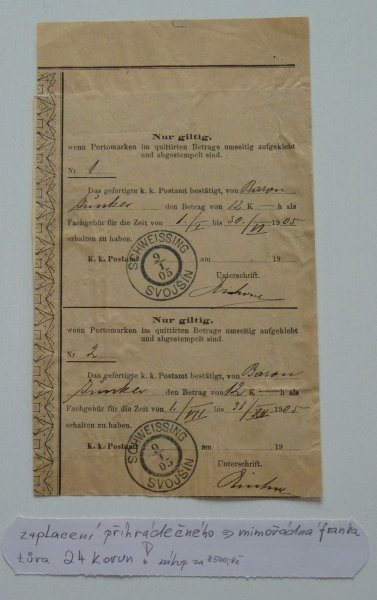 Nur giltig,
wenn Portomarken im quittirten Betrage umseitig aufgeklebt
und abgestempelt sind.
Nr. 1.
Das gefertigte k. k. Postamt bestätigt, von Baron
Juncker den Betrag von 12 K — h als
Fachgebür für die Zeit von 1./I. bis 30./VI 1905
erhalten zu haben.
K. k. Postamt am 19
SCHWEISSING
9
1
05
SVOJŠIN
Unterschrift.
Nur giltig,
wenn Portomarken im quittirten Betrage umseitig aufgeklebt
und abgestempelt sind.
Nr. 2
Das gefertigte k. k. Postamt bestätigt, von Baron
Juncker den Betrag von 12 K — h als
Fachgebür für die Zeit von 1./VII bis 31/XII 1905
erhalten zu haben.
K. k. Postamt am 19
SCHWEISSING
9
1
05
SVOJŠIN
Unterschrift.
zaplacení přihrádečného ⇒ mimořádná franka
túra 24 korun! nákup za 2500,-Kč